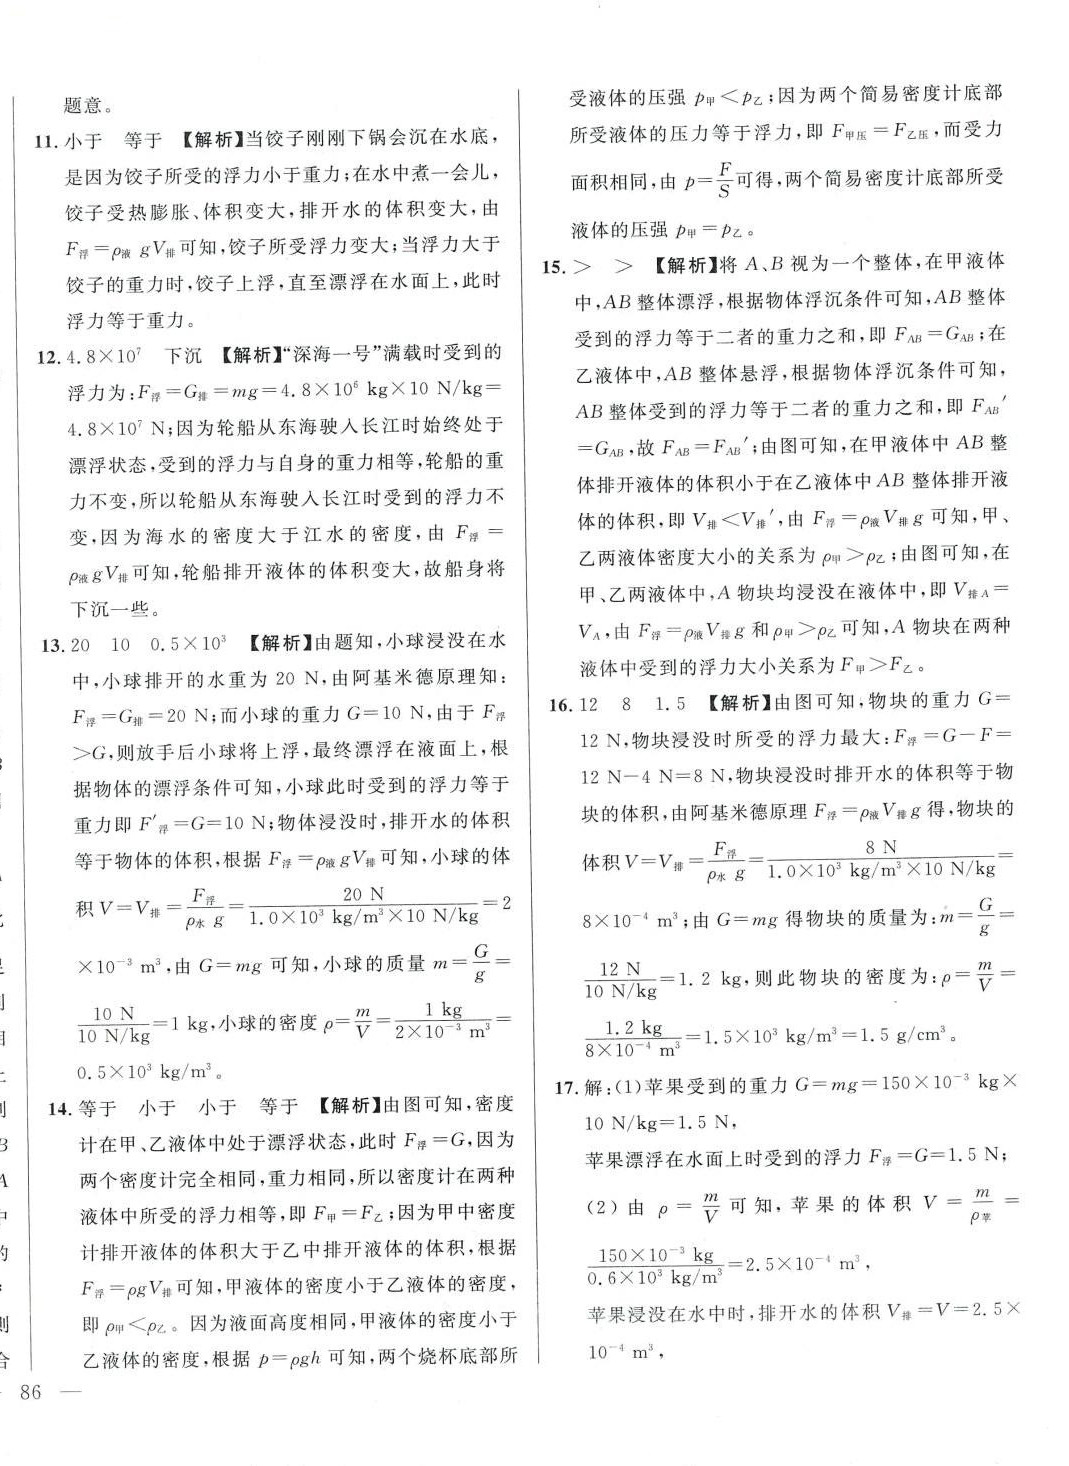 题意。
11. 小于 等于 【解析】当饺子刚刚下锅会沉在水底，
是因为饺子所受的浮力小于重力；在水中煮一会儿，
饺子受热膨胀、体积变大，排开水的体积变大，由
F浮=ρ液 gV排可知，饺子所受浮力变大；当浮力大于
饺子的重力时，饺子上浮，直至漂浮在水面上，此时
浮力等于重力。
12. 4.8×10⁷ 下沉 【解析】“深海一号”满载时受到的
浮力为：F浮=G排=mg=4.8×10⁶ kg×10 N/kg=
4.8×10⁷ N；因为轮船从东海驶入长江时始终处于
漂浮状态，受到的浮力与自身的重力相等，轮船的重
力不变，所以轮船从东海驶入长江时受到的浮力不
变，因为海水的密度大于江水的密度，由 F浮=
ρ液gV排可知，轮船排开液体的体积变大，故船身将
下沉一些。
13. 20 10 0.5×10³ 【解析】由题知，小球浸没在水
中，小球排开的水重为 20 N，由阿基米德原理知：
F浮=G排=20 N；而小球的重力 G=10 N，由于 F浮
>G，则放手后小球将上浮，最终漂浮在液面上，根
据物体的漂浮条件可知，小球此时受到的浮力等于
重力即 F′浮=G=10 N；物体浸没时，排开水的体积
等于物体的体积，根据 F浮=ρ液gV排可知，小球的体
积 V=V排=F浮/(ρ水 g)=20 N/(1.0×10³ kg/m³×10 N/kg)=2
×10⁻³ m³，由 G=mg 可知，小球的质量 m=G/g=
10 N/(10 N/kg)=1 kg，小球的密度 ρ=m/V=1 kg/(2×10⁻³ m³)=
0.5×10³ kg/m³。
14. 等于 小于 小于 等于 【解析】由图可知，密度
计在甲、乙液体中处于漂浮状态，此时 F浮=G，因为
两个密度计完全相同，重力相同，所以密度计在两种
液体中所受的浮力相等，即 F甲=F乙；因为甲中密度
计排开液体的体积大于乙中排开液体的体积，根据
F浮=ρgV排可知，甲液体的密度小于乙液体的密度，
即 ρ甲<ρ乙。因为液面高度相同，甲液体的密度小于
乙液体的密度，根据 p=ρgh 可知，两个烧杯底部所
86 —
受液体的压强 p甲<p乙；因为两个简易密度计底部
所受液体的压力等于浮力，即 F甲压=F乙压，而受力
面积相同，由 p=F/S可得，两个简易密度计底部所受
液体的压强 p甲=p乙。
15. > > 【解析】将 A、B 视为一个整体，在甲液体
中，AB 整体漂浮，根据物体浮沉条件可知，AB 整体
受到的浮力等于二者的重力之和，即 F_AB=G_AB；在
乙液体中，AB 整体悬浮，根据物体浮沉条件可知，
AB 整体受到的浮力等于二者的重力之和，即 F_AB′
=G_AB，故 F_AB=F_AB′；由图可知，在甲液体中 AB 整
体排开液体的体积小于在乙液体中 AB 整体排开液
体的体积，即 V排<V排′，由 F浮=ρ液V排g 可知，甲、
乙两液体密度大小的关系为 ρ甲>ρ乙；由图可知，在
甲、乙两液体中，A 物块均浸没在液体中，即 V排A=
V_A，由 F浮=ρ液V排g 和ρ甲>ρ乙可知，A 物块在两种
液体中受到的浮力大小关系为 F甲>F乙。
16. 12 8 1.5 【解析】由图可知，物块的重力 G=
12 N，物块浸没时所受的浮力最大：F浮=G−F=
12 N−4 N=8 N，物块浸没时排开水的体积等于物
块的体积，由阿基米德原理 F浮=ρ液V排g 得，物块的
体积 V=V排=F浮/(ρ水 g)=8 N/(1.0×10³ kg/m³×10 N/kg)=
8×10⁻⁴ m³；由 G=mg 得物块的质量为：m=G/g=
12 N/(10 N/kg)=1.2 kg，则此物块的密度为：ρ=m/V=
1.2 kg/(8×10⁻⁴ m³)=1.5×10³ kg/m³=1.5 g/cm³。
17. 解：(1)苹果受到的重力 G=mg=150×10⁻³ kg×
10 N/kg=1.5 N，
苹果漂浮在水面上时受到的浮力 F浮=G=1.5 N；
(2) 由 ρ=m/V 可知，苹果的体积 V=m/ρ苹=
150×10⁻³ kg/(0.6×10³ kg/m³)=2.5×10⁻⁴ m³，
苹果浸没在水中时，排开水的体积 V排=V=2.5×
10⁻⁴ m³，